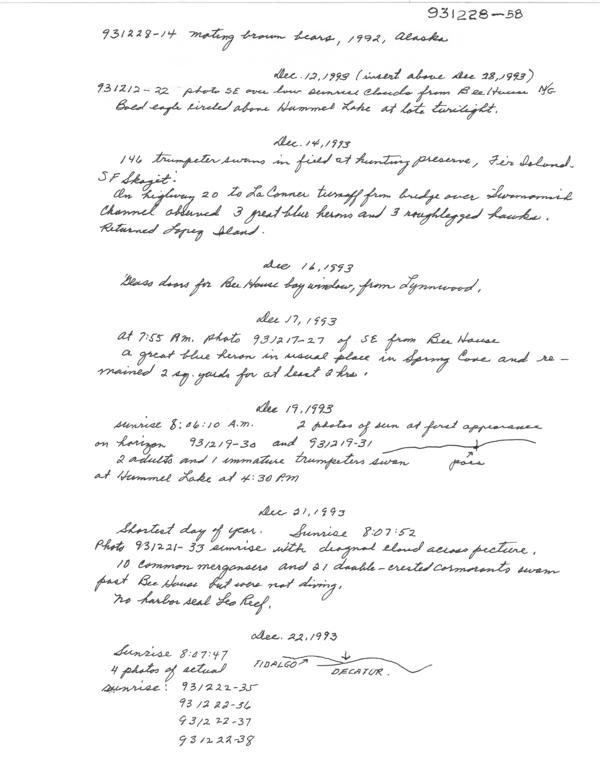 931228-58
931228-14 mating brown bears, 1992, Alaska
Dec. 12, 1993 (insert above Dec 28, 1993)
931212-22 photo SE over low sunrise clouds from Bee House N/G
Bald eagle circled above Hummel Lake at late twilight.
Dec. 14, 1993
146 trumpeter swans in field at hunting preserve, Fir Island.
SF Skagit.
On highway 20 to LaConner turnoff from bridge over Swinomish
Channel observed 3 great blue herons and 3 roughlegged hawks.
Returned Lopez Island.
Dec 16, 1993
Glass doors for Bee House bay window, from Lynnwood.
Dec 17, 1993
At 7:55 A.M. photo 931217-27 of SE from Bee House
a great blue heron in usual place in Spring Cove and re-
mained 2 sq. yards for at least 2 hrs.
Dec 19, 1993
sunrise 8:06:10 A.M. 2 photos of sun at first appearance
on horizon 931219-30 and 931219-31
2 adults and 1 immature trumpeters swan pass
at Hummel Lake at 4:30 PM
Dec 21, 1993
Shortest day of year. Sunrise 8:07:52
Photo 931221-33 sunrise with diagnal cloud across picture.
10 common mergansers and 21 double-crested cormorants swam
past Bee House but were not diving.
No harbor seal Leo Reef.
Dec. 22, 1993
Sunrise 8:07:47
4 photos of actual TIDALGO DECATUR.
sunrise: 931222-35
931222-36
931222-37
931222-38